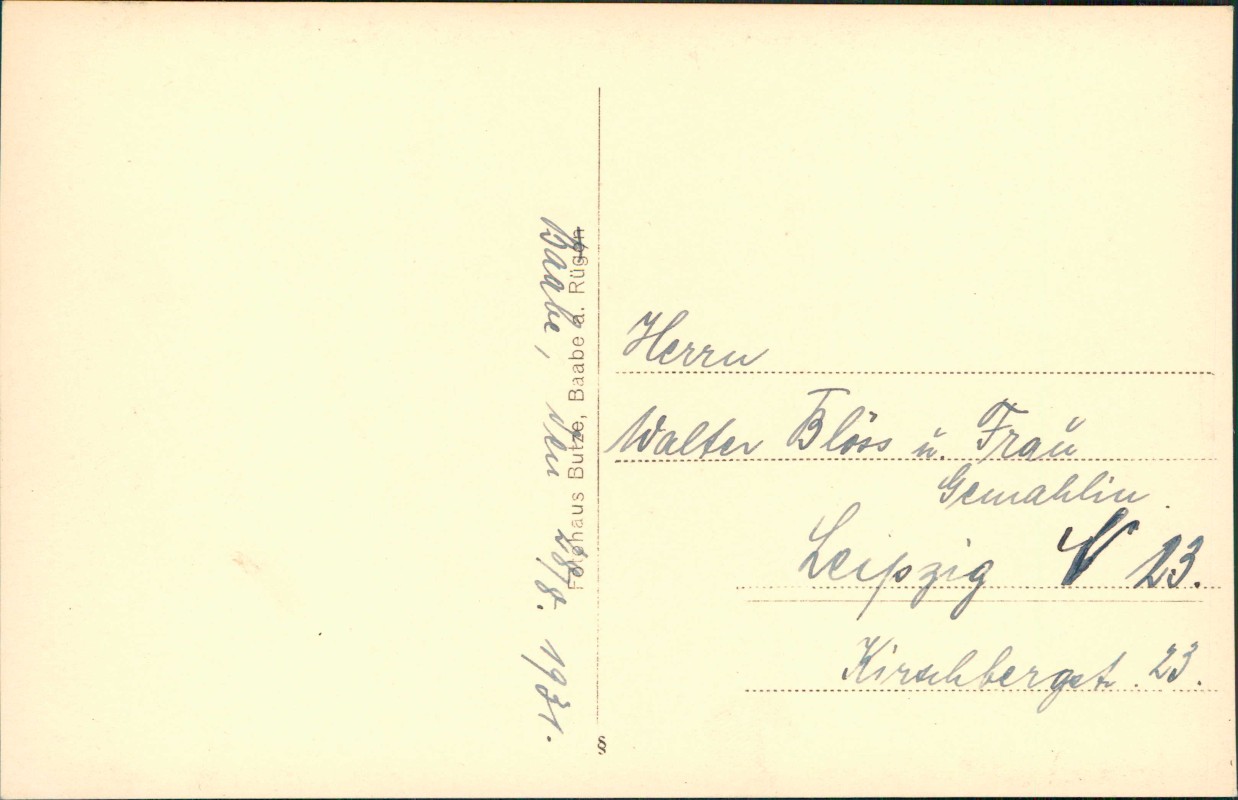 Baabe, den 28/8. 1931.
Fotohaus Butze, Baabe a. Rügen
Herrn
Walter Blöss u. Frau
Gemahlin.
Leipzig 23.
Kirschbergst. 23.
§